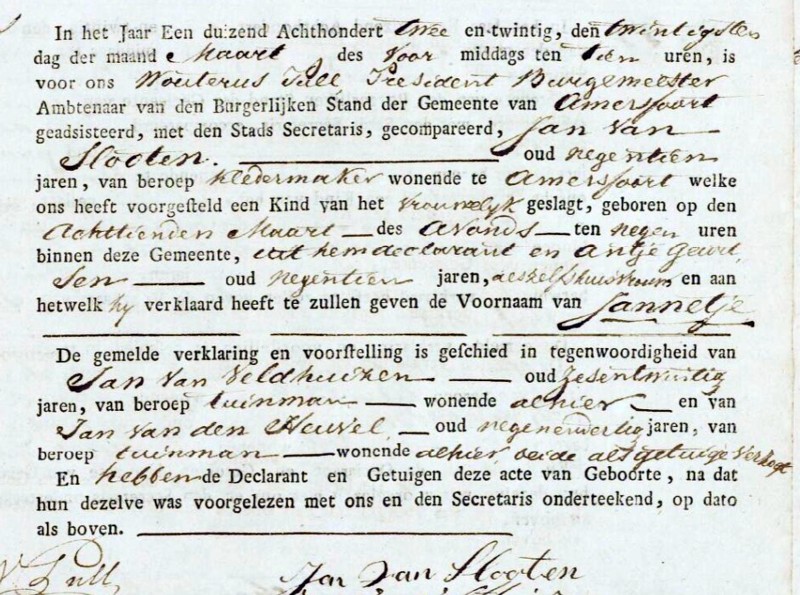 In het Jaar Een duizend Achthondert twee en twintig, den twintigsten
dag der maand Maart des Voor middags ten tien uren, is
voor ons Wouterus Pull President Burgemeester
Ambtenaar van den Burgerlijken Stand der Gemeente van Amersfoort
geadsisteerd, met den Stads Secretaris, gecompareerd, Jan van
Slooten. oud negentien
jaren, van beroep kledermaker wonende te Amersfoort welke
ons heeft voorgesteld een Kind van het vrouwelyk geslagt, geboren op den
Achttienden Maart des avonds ten negen uren
binnen deze Gemeente, uit hem declarant en Antje Gerrit
sen oud negentien jaren, deszelfs huisvrouw en aan
hetwelk hy verklaard heeft te zullen geven de Voornaam van Jannetje
De gemelde verklaring en voorstelling is geschied in tegenwoordigheid van
Jan van Veldhuizen oud zesentwintig
jaren, van beroep tuinman wonende alhier en van
Jan van den Heuvel oud negenendertig jaren, van
beroep tuinman wonende alhier, beide als getuige verzogt
En hebben de Declarant en Getuigen deze acte van Geboorte, na dat
hun dezelve was voorgelezen met ons en den Secretaris onderteekend, op dato
als boven.
W Pull Jan van Slooten